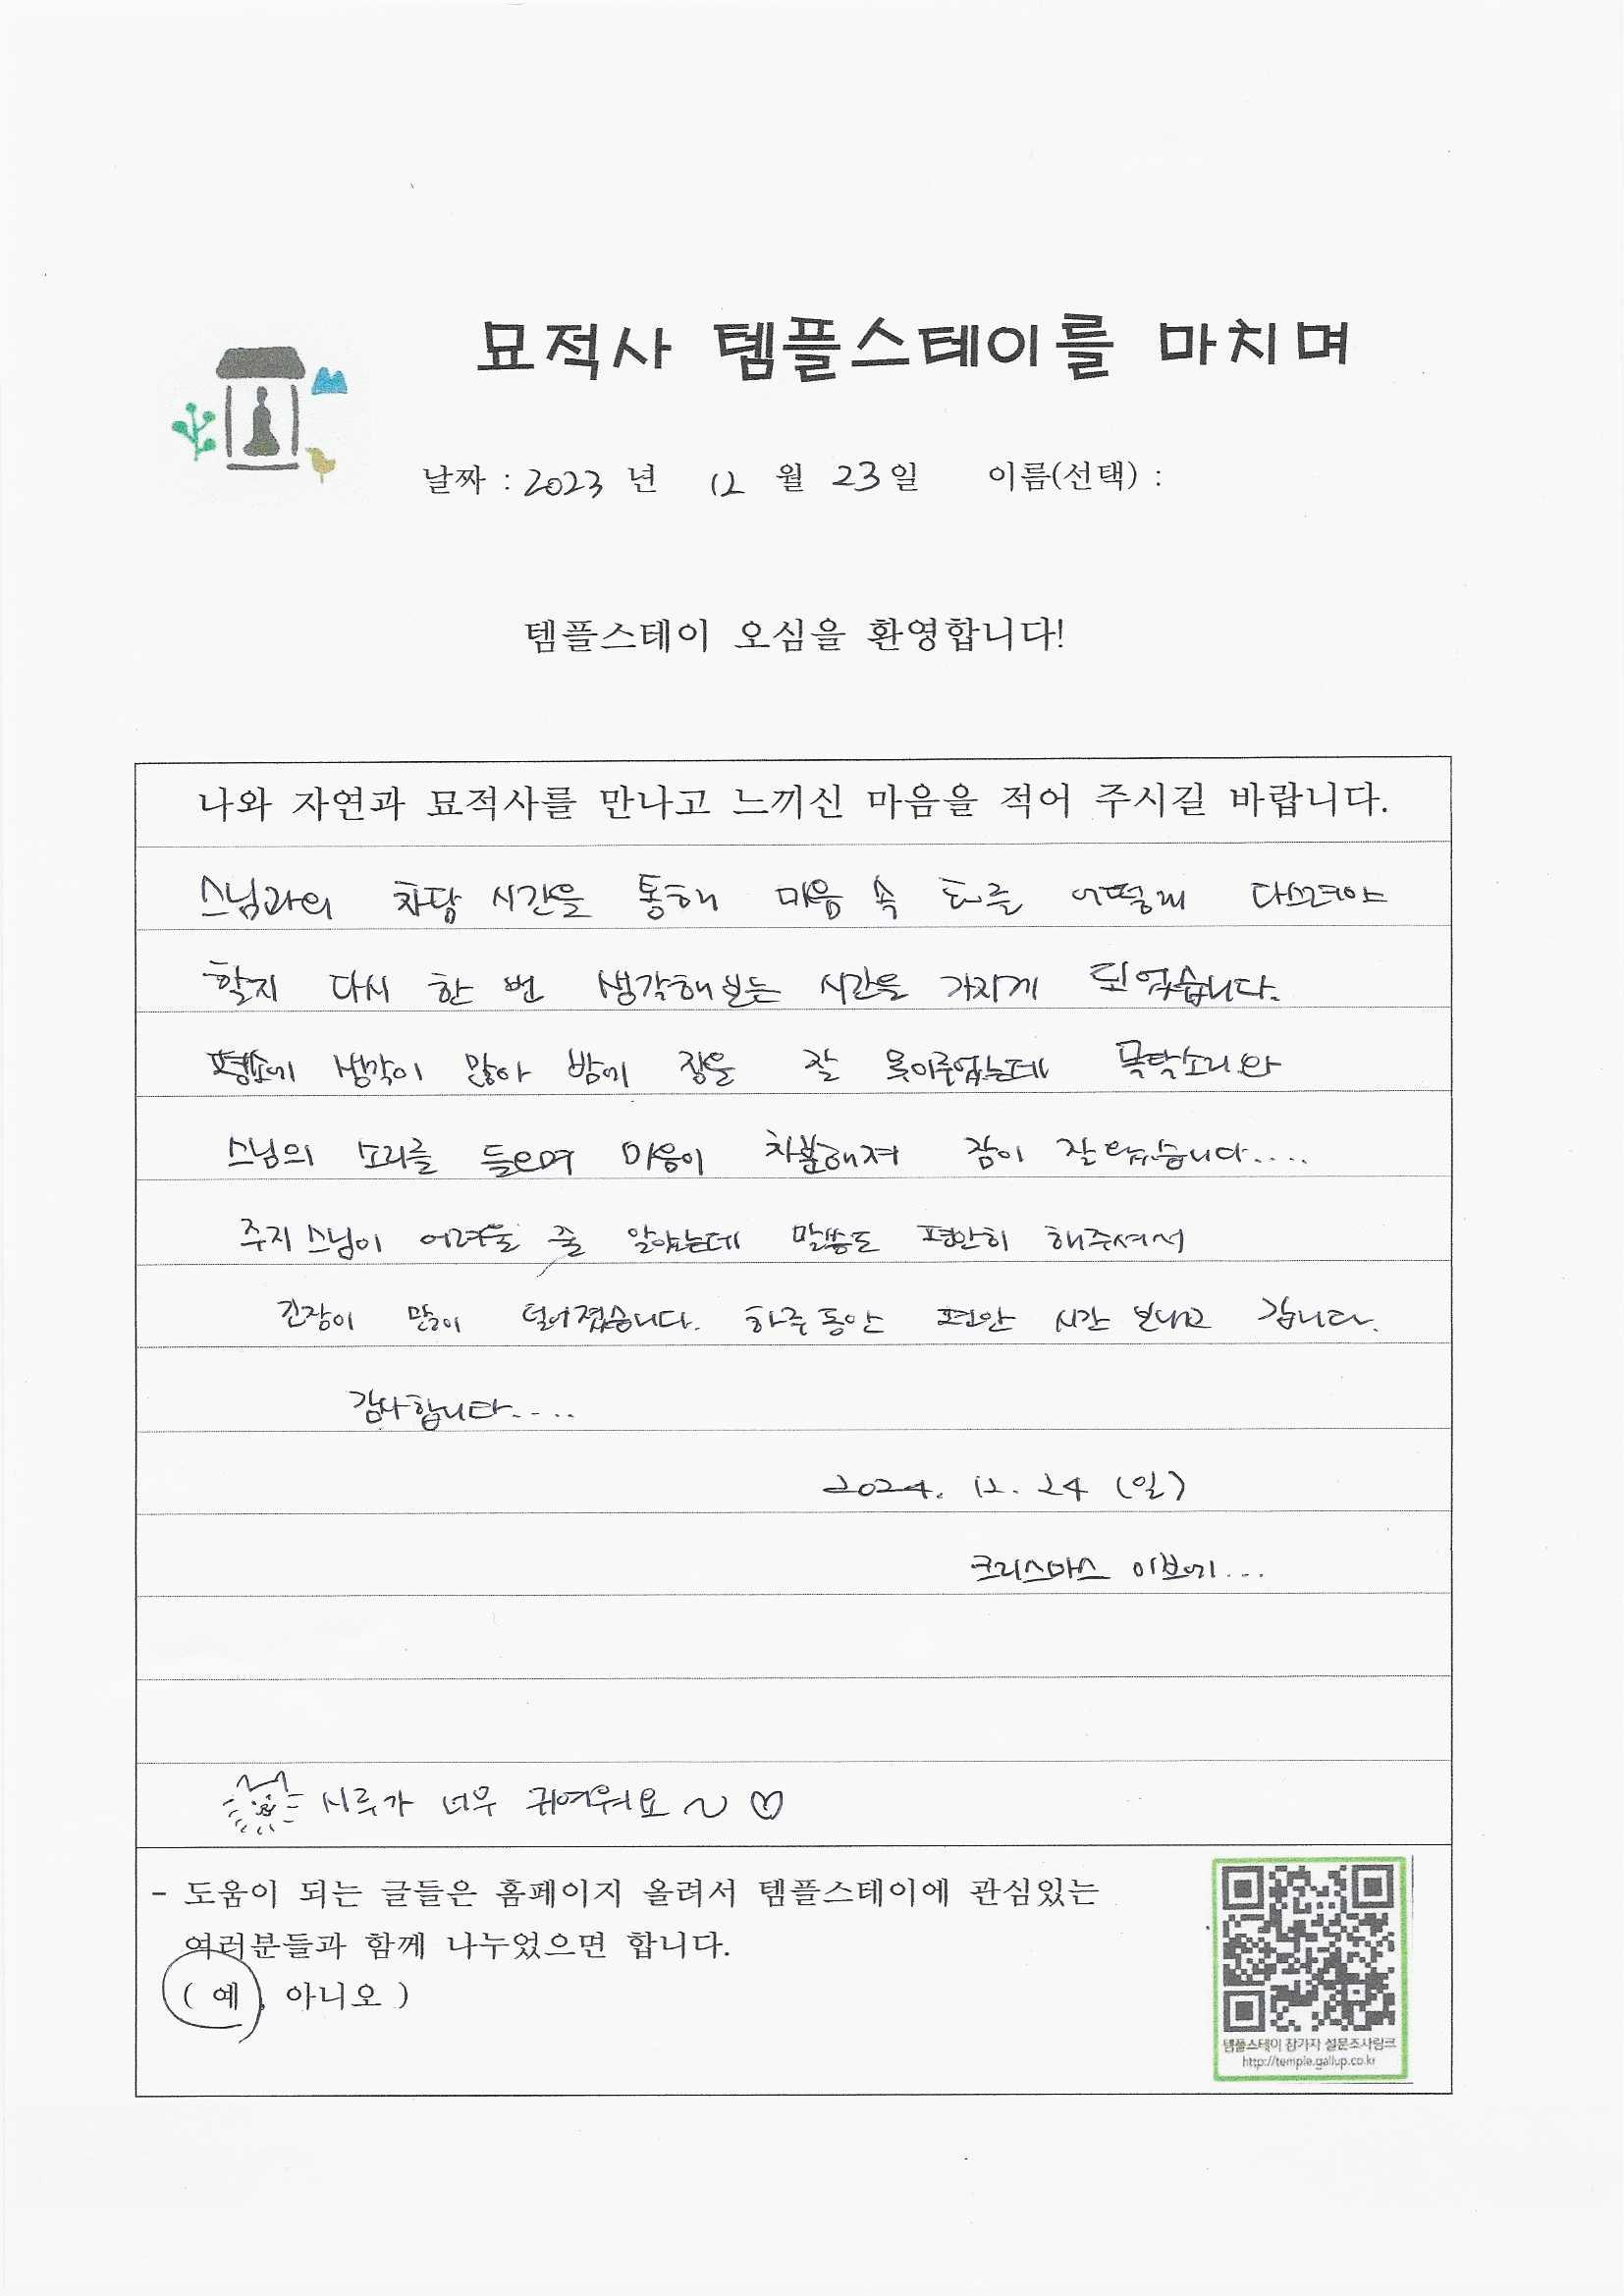 묘적사 템플스테이를 마치며
날짜 : 2023 년 12 월 23일 이름(선택) :
템플스테이 오심을 환영합니다!
나와 자연과 묘적사를 만나고 느끼신 마음을 적어 주시길 바랍니다.
스님과의 차담 시간을 통해 마음 속 화를 어떻게 다스려야
할지 다시 한 번 생각해보는 시간을 가지게 되었습니다.
평소에 생각이 많아 밤에 잠을 잘 못이루었는데 목탁소리와
스님의 소리를 들으며 마음이 차분해져 잠이 잘 왔습니다....
주지스님이 어려울 줄 알았는데 말씀도 편안히 해주셔서
긴장이 많이 덜어졌습니다. 하루동안 편안 시간 보내고 갑니다.
감사합니다....
2024. 12. 24 (일)
크리스마스 이브에...
시루가 너무 귀여워요~♡
- 도움이 되는 글들은 홈페이지 올려서 템플스테이에 관심있는
여러분들과 함께 나누었으면 합니다.
( 예, 아니오 )
템플스테이 참가자 설문조사링크
http://temple.gallup.co.kr